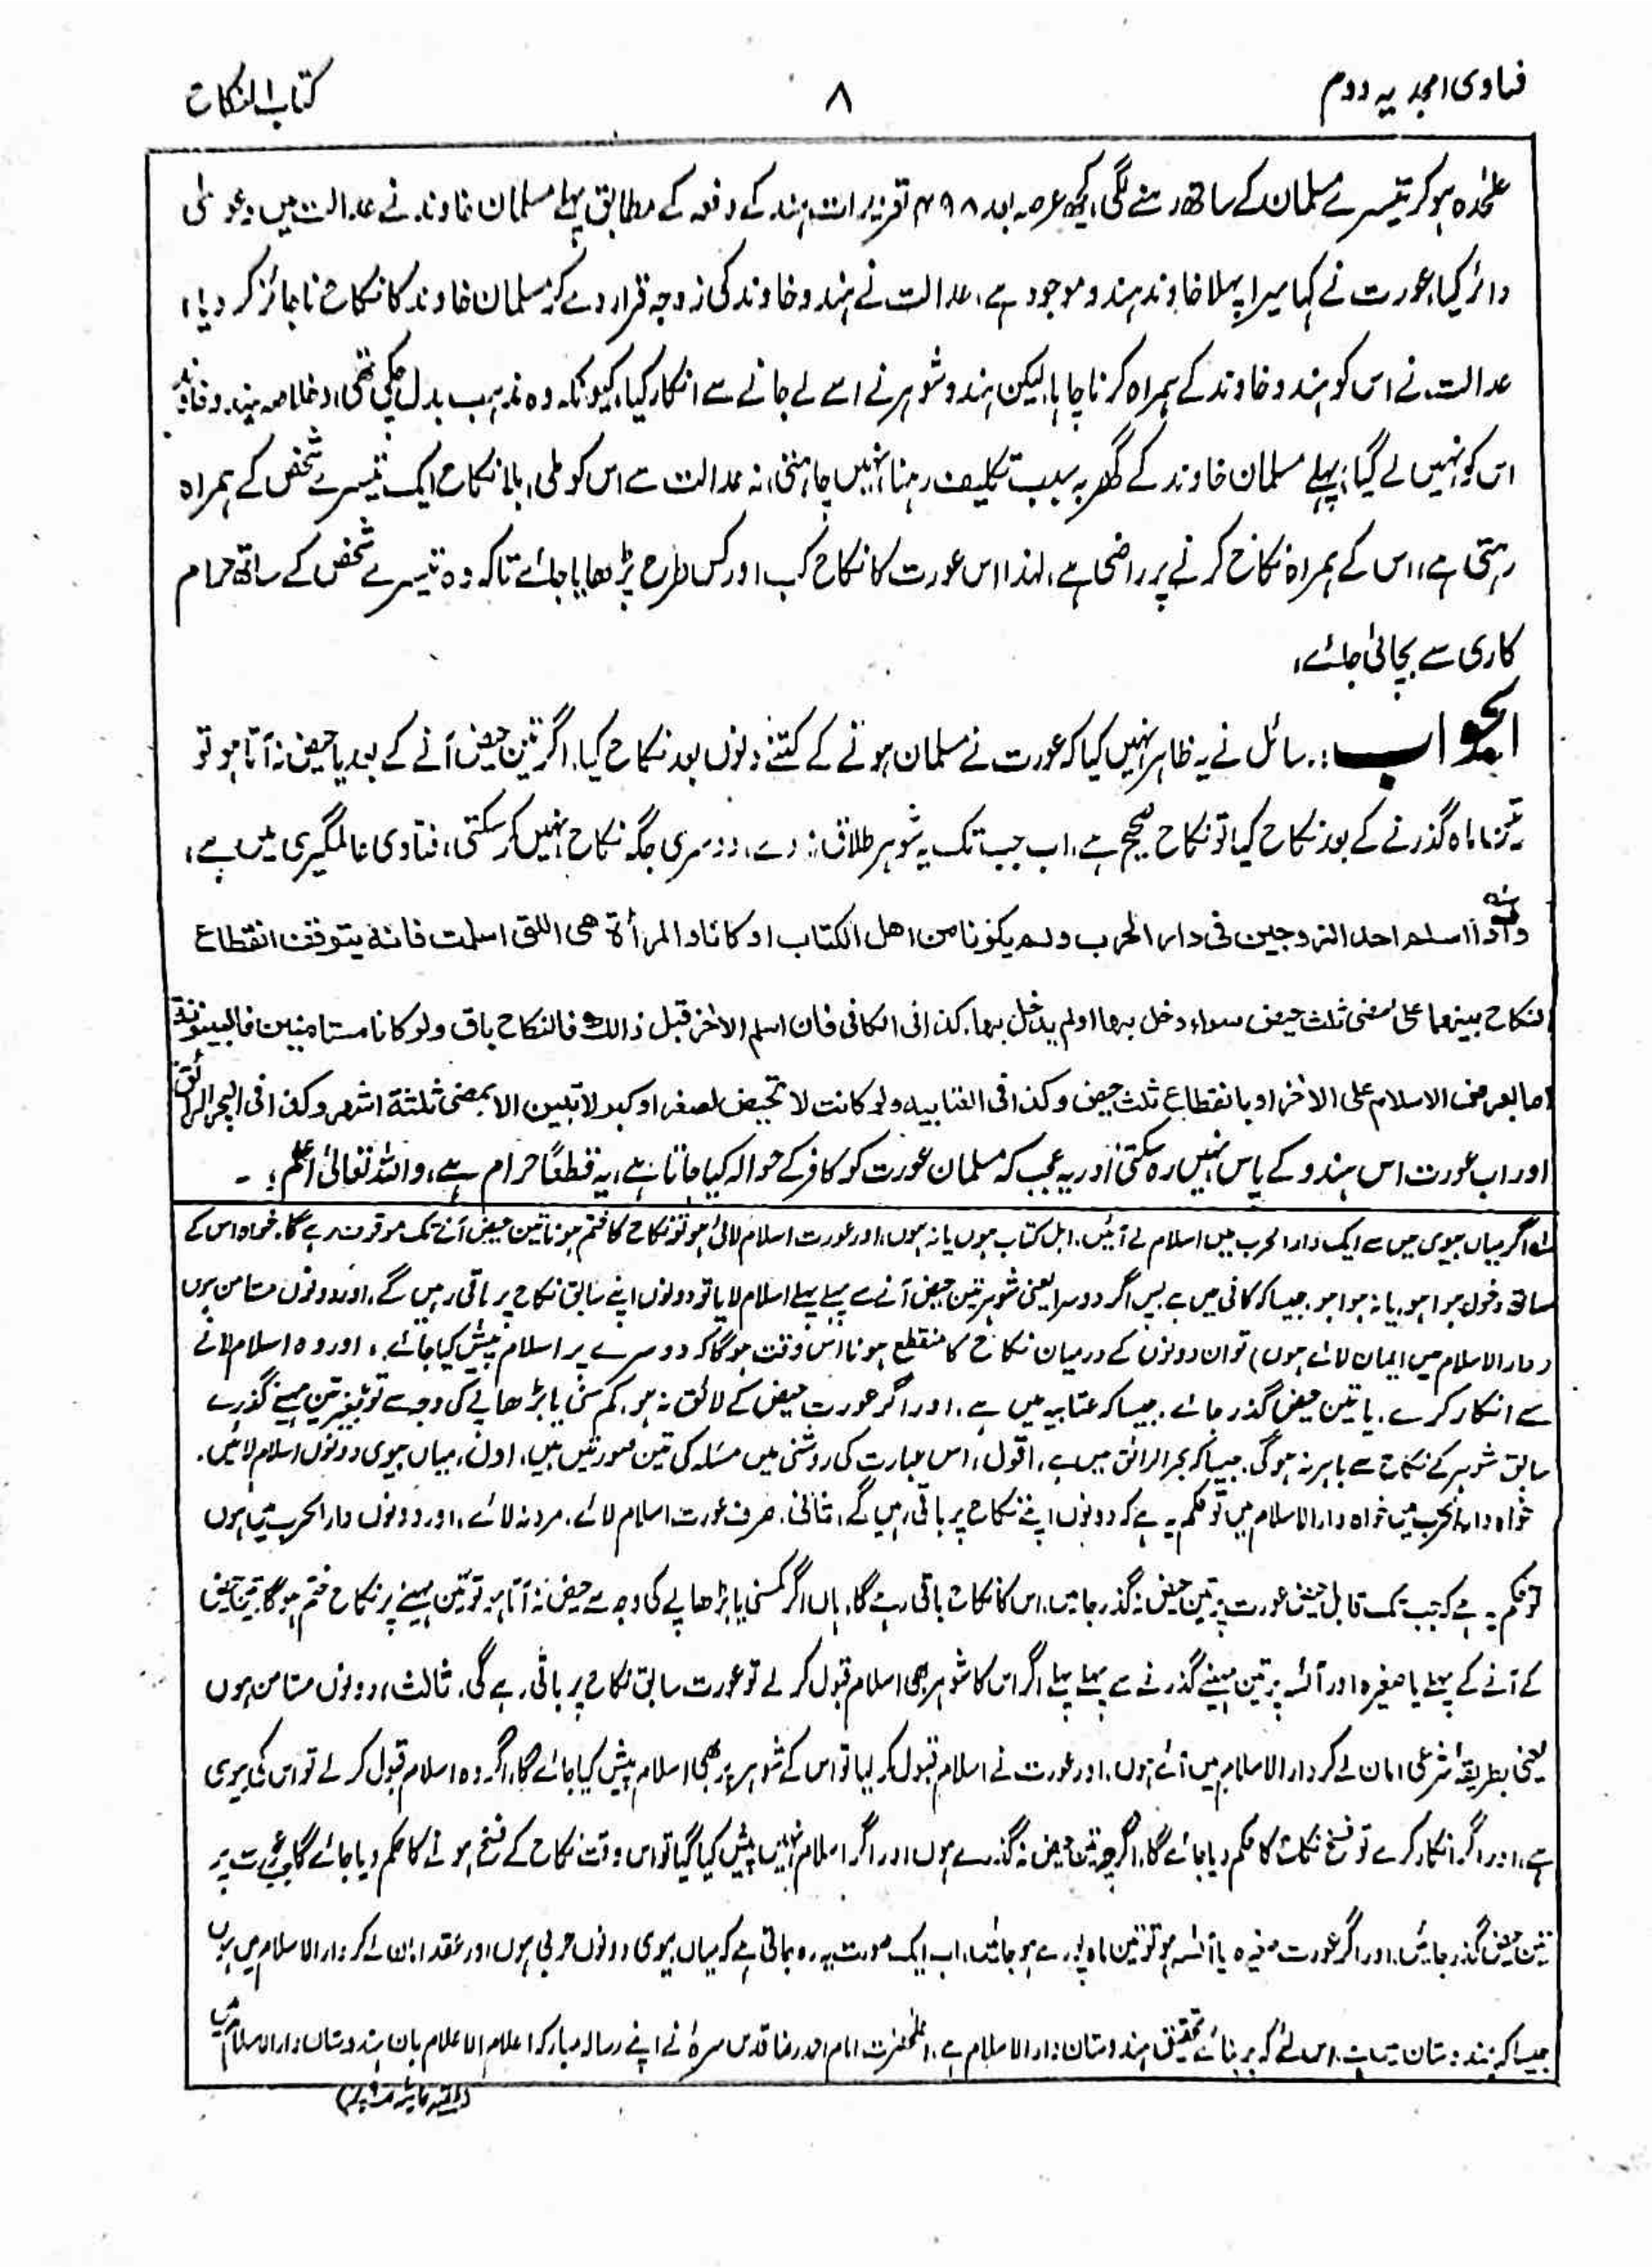 فتاوی امجدیہ دوم
۸
کتاب النکاح
علٰحدہ ہوکر تیسرے مسلمان کے ساتھ رہنے لگی، کچھ عرصہ بعد ۴۹۸ تعزیرات ہند کے دفعہ کے مطابق پہلے مسلمان خاوند نے عدالت میں دعویٰ
دائر کیا، عورت نے کہا میرا پہلا خاوند ہندو موجود ہے، عدالت نے ہندو خاوند کی زوجہ قرار دے کر مسلمان خاوند کا نکاح ناجائز کر دیا،
عدالت نے اس کو ہندو خاوند کے ہمراہ کرنا چاہا لیکن ہندو شوہر نے اسے لے جانے سے انکار کیا، کیونکہ وہ مذہب بدل چکی تھی، خلاصہ ہندو خاوند
اس کو نہیں لے گیا، پہلے مسلمان خاوند کے گھر بہ سبب تکلیف رہنا نہیں چاہتی، نہ عدالت سے اس کو ملی، بلا نکاح ایک تیسرے شخص کے ہمراہ
رہتی ہے، اس کے ہمراہ نکاح کرنے پر راضی ہے، لہٰذا اس عورت کا نکاح کب اور کس طرح پڑھایا جائے تاکہ وہ تیسرے شخص کے ساتھ حرام
کاری سے بچائی جائے،
الجواب :. سائل نے یہ ظاہر نہیں کیا کہ عورت نے مسلمان ہونے کے کتنے دنوں بعد نکاح کیا. اگر تین حیض آنے کے بعد یا حیض نہ آتا ہو تو
تین ماہ گذرنے کے بعد نکاح کیا تو نکاح صحیح ہے، اب جب تک یہ شوہر طلاق نہ دے، دوسری جگہ نکاح نہیں کرسکتی، فتاوی عالمگیری میں ہے،
واذا اسلم احد الزوجین فی دار الحرب ولم یکونا من اهل الکتاب او کانا والمرأة هی اللتی اسلمت فانه یتوقف انقطاع
النکاح بینهما علی مضی ثلث حیض سواء دخل بها اولم یدخل بها. کذا فی الکافی فان اسلم الاٰخر قبل ذالك فالنکاح باق ولو کانا مستامنین فالبینونة
اما بعرض الاسلام علی الاٰخر او بانقطاع ثلث حیض وکذا فی العتابیه ولو کانت لا تحیض لصغر او کبر لا تبین الا بمضی ثلثة اشهر وکذا فی البحر الرائق
اور اب عورت اس ہندو کے پاس نہیں رہ سکتی اور یہ عجب کہ مسلمان عورت کو کافر کے حوالہ کیا جاتا ہے، یہ قطعًا حرام ہے، واللہ تعالیٰ اعلم؛ ۔
اگر میاں بیوی میں سے ایک دار الحرب میں اسلام لے آئیں. اہل کتاب ہوں یا نہ ہوں، اور عورت اسلام لائی ہو تو نکاح کا ختم ہونا تین حیض آنے تک موقوف رہے گا. خواہ اس کے
ساتھ دخول ہوا ہو، یا نہ ہوا ہو. جیسا کہ کافی میں ہے پس اگر دوسرا یعنی شوہر تین حیض آنے سے پہلے پہلے اسلام لایا تو دونوں اپنے سابق نکاح پر باقی رہیں گے. اور دونوں مستامن ہوں
(دار الاسلام میں ایمان لائے ہوں) تو ان دونوں کے درمیان نکاح کا منقطع ہونا اس وقت ہوگا کہ دوسرے پر اسلام پیش کیا جائے، اور وہ اسلام لانے
سے انکار کرے. یا تین حیض گذر جائے. جیسا کہ عتابیہ میں ہے. اور اگر عورت حیض کے لائق نہ ہو. کم سنی یا بڑھاپے کی وجہ سے تو بغیر تین مہینے گذرے
سابق شوہر کے نکاح سے باہر نہ ہوگی. جیسا کہ بحر الرائق میں ہے. اقول، اس عبارت کی روشنی میں مسئلہ کی تین صورتیں ہیں، اول، میاں بیوی دونوں اسلام لائیں.
خواہ دار الحرب میں خواہ دار الاسلام میں تو حکم یہ ہے کہ دونوں اپنے نکاح پر باقی رہیں گے، ثانی. صرف عورت اسلام لائے. مرد نہ لائے، اور دونوں دار الحرب میں ہوں
تو حکم یہ ہے کہ جب تک قابل حیض عورت پر تین حیض نہ گذر جائیں. اس کا نکاح باقی رہے گا. ہاں اگر کمسنی یا بڑھاپے کی وجہ سے حیض نہ آتا ہو تو تین مہینے پر نکاح ختم ہوگا. تین حیض
کے آنے کے پہلے یا صغیرہ اور آئسہ پر تین مہینے گذرنے سے پہلے پہلے اگر اس کا شوہر بھی اسلام قبول کر لے تو عورت سابق نکاح پر باقی رہے گی. ثالث، دونوں مستامن ہوں
یعنی بطریقۂ شرعی امان لے کر دار الاسلام میں آئے ہوں. اور عورت نے اسلام قبول کر لیا تو اس کے شوہر پر بھی اسلام پیش کیا جائے گا، اگر وہ اسلام قبول کر لے تو اس کی بیوی
ہے، اور اگر انکار کرے تو فسخ نکاح کا حکم دیا جائے گا، اگرچہ تین حیض نہ گذرے ہوں اور اگر اسلام نہیں پیش کیا گیا تو اس وقت نکاح کے فسخ ہونے کا حکم دیا جائے گا جب عورت پر
تین حیض گذر جائیں. اور اگر عورت صغیرہ یا آئسہ ہو تو تین ماہ پورے ہو جائیں، اب ایک صورت یہ رہ جاتی ہے کہ میاں بیوی دونوں حربی ہوں اور عقد امان لے کر دار الاسلام میں ہوں
جیسا کہ ہندوستان میں ہے. اس لئے کہ بربنائے تحقیق ہندوستان دار الاسلام ہے. اعلٰحضرت امام احمد رضا قدس سرہٗ نے اپنے رسالہ مبارکہ اعلام الاعلام بان ہندوستان دار الاسلام میں